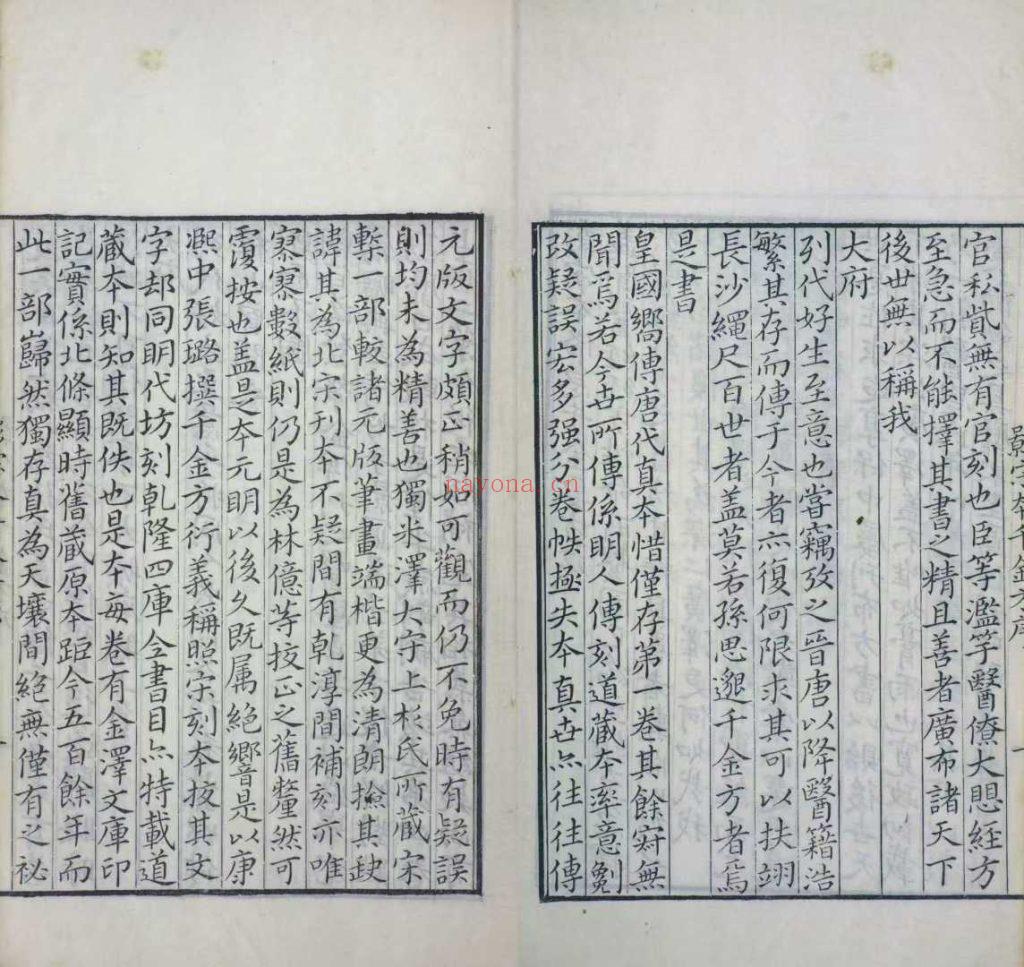 官私貲無有官刻也臣等濫竽醫僚大思経方
至急而不能擇其書之精且善者廣布諸天下
後世無以稱我
大府
列代好生至意也嘗竊攷之晉唐以降醫籍浩
繁其存而傳于今者亦復何限求其可以扶翊
長沙繩尺百世者盖莫若孫思邈千金方者焉
是書
皇國嚮傳唐代真本惜僅存第一卷其餘寂無
聞焉若今世所傳係明人傳刻道藏本率意劖
改疑誤宏多强分卷帙極失本真世亦往往傳
元版文字頗正稍如可觀而仍不免時有疑誤
則均未為精善也獨米澤大守上杉氏所藏宋
槧一部較諸元版筆畫端楷更為清朗撿其缺
諱其為北宋刊本不疑間有乹淳間補刻亦唯
寥寥數紙則仍是為林億等挍正之舊釐然可
覆按也盖是本元明以後久既属絶響是以康
熙中張璐撰千金方衍義稱照宋刻本挍其文
字却同明代坊刻乹隆四庫全書目亦特載道
藏本則知其既佚也是本每卷有金澤文庫印
記實係北條顯時舊藏原本距今五百餘年而
此一部巋然獨存真為天壤間絶無僅有之祕
nayona.cn